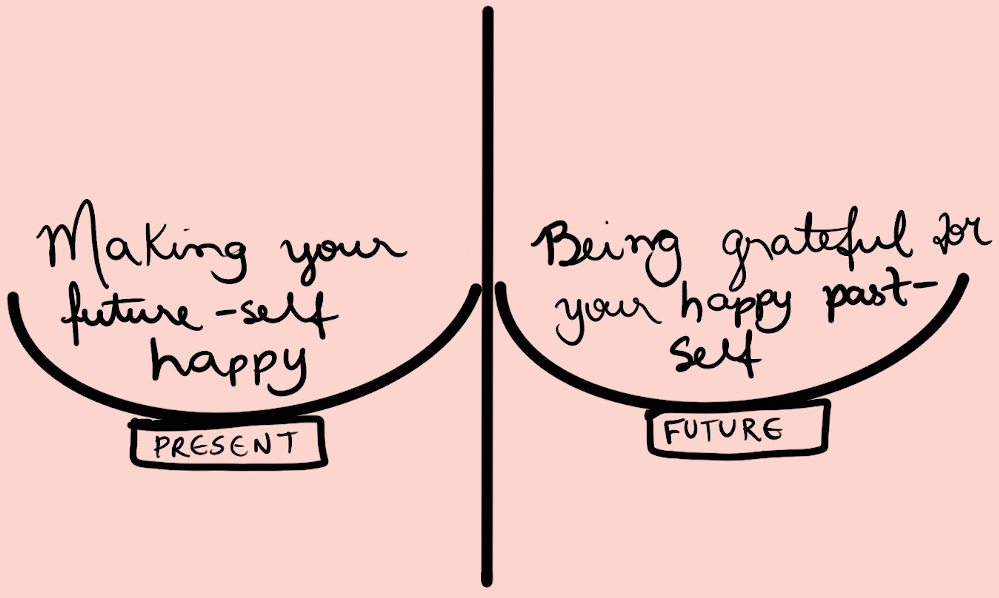 Making your
future-self
happy
PRESENT
Being grateful for
your happy past-
self
FUTURE